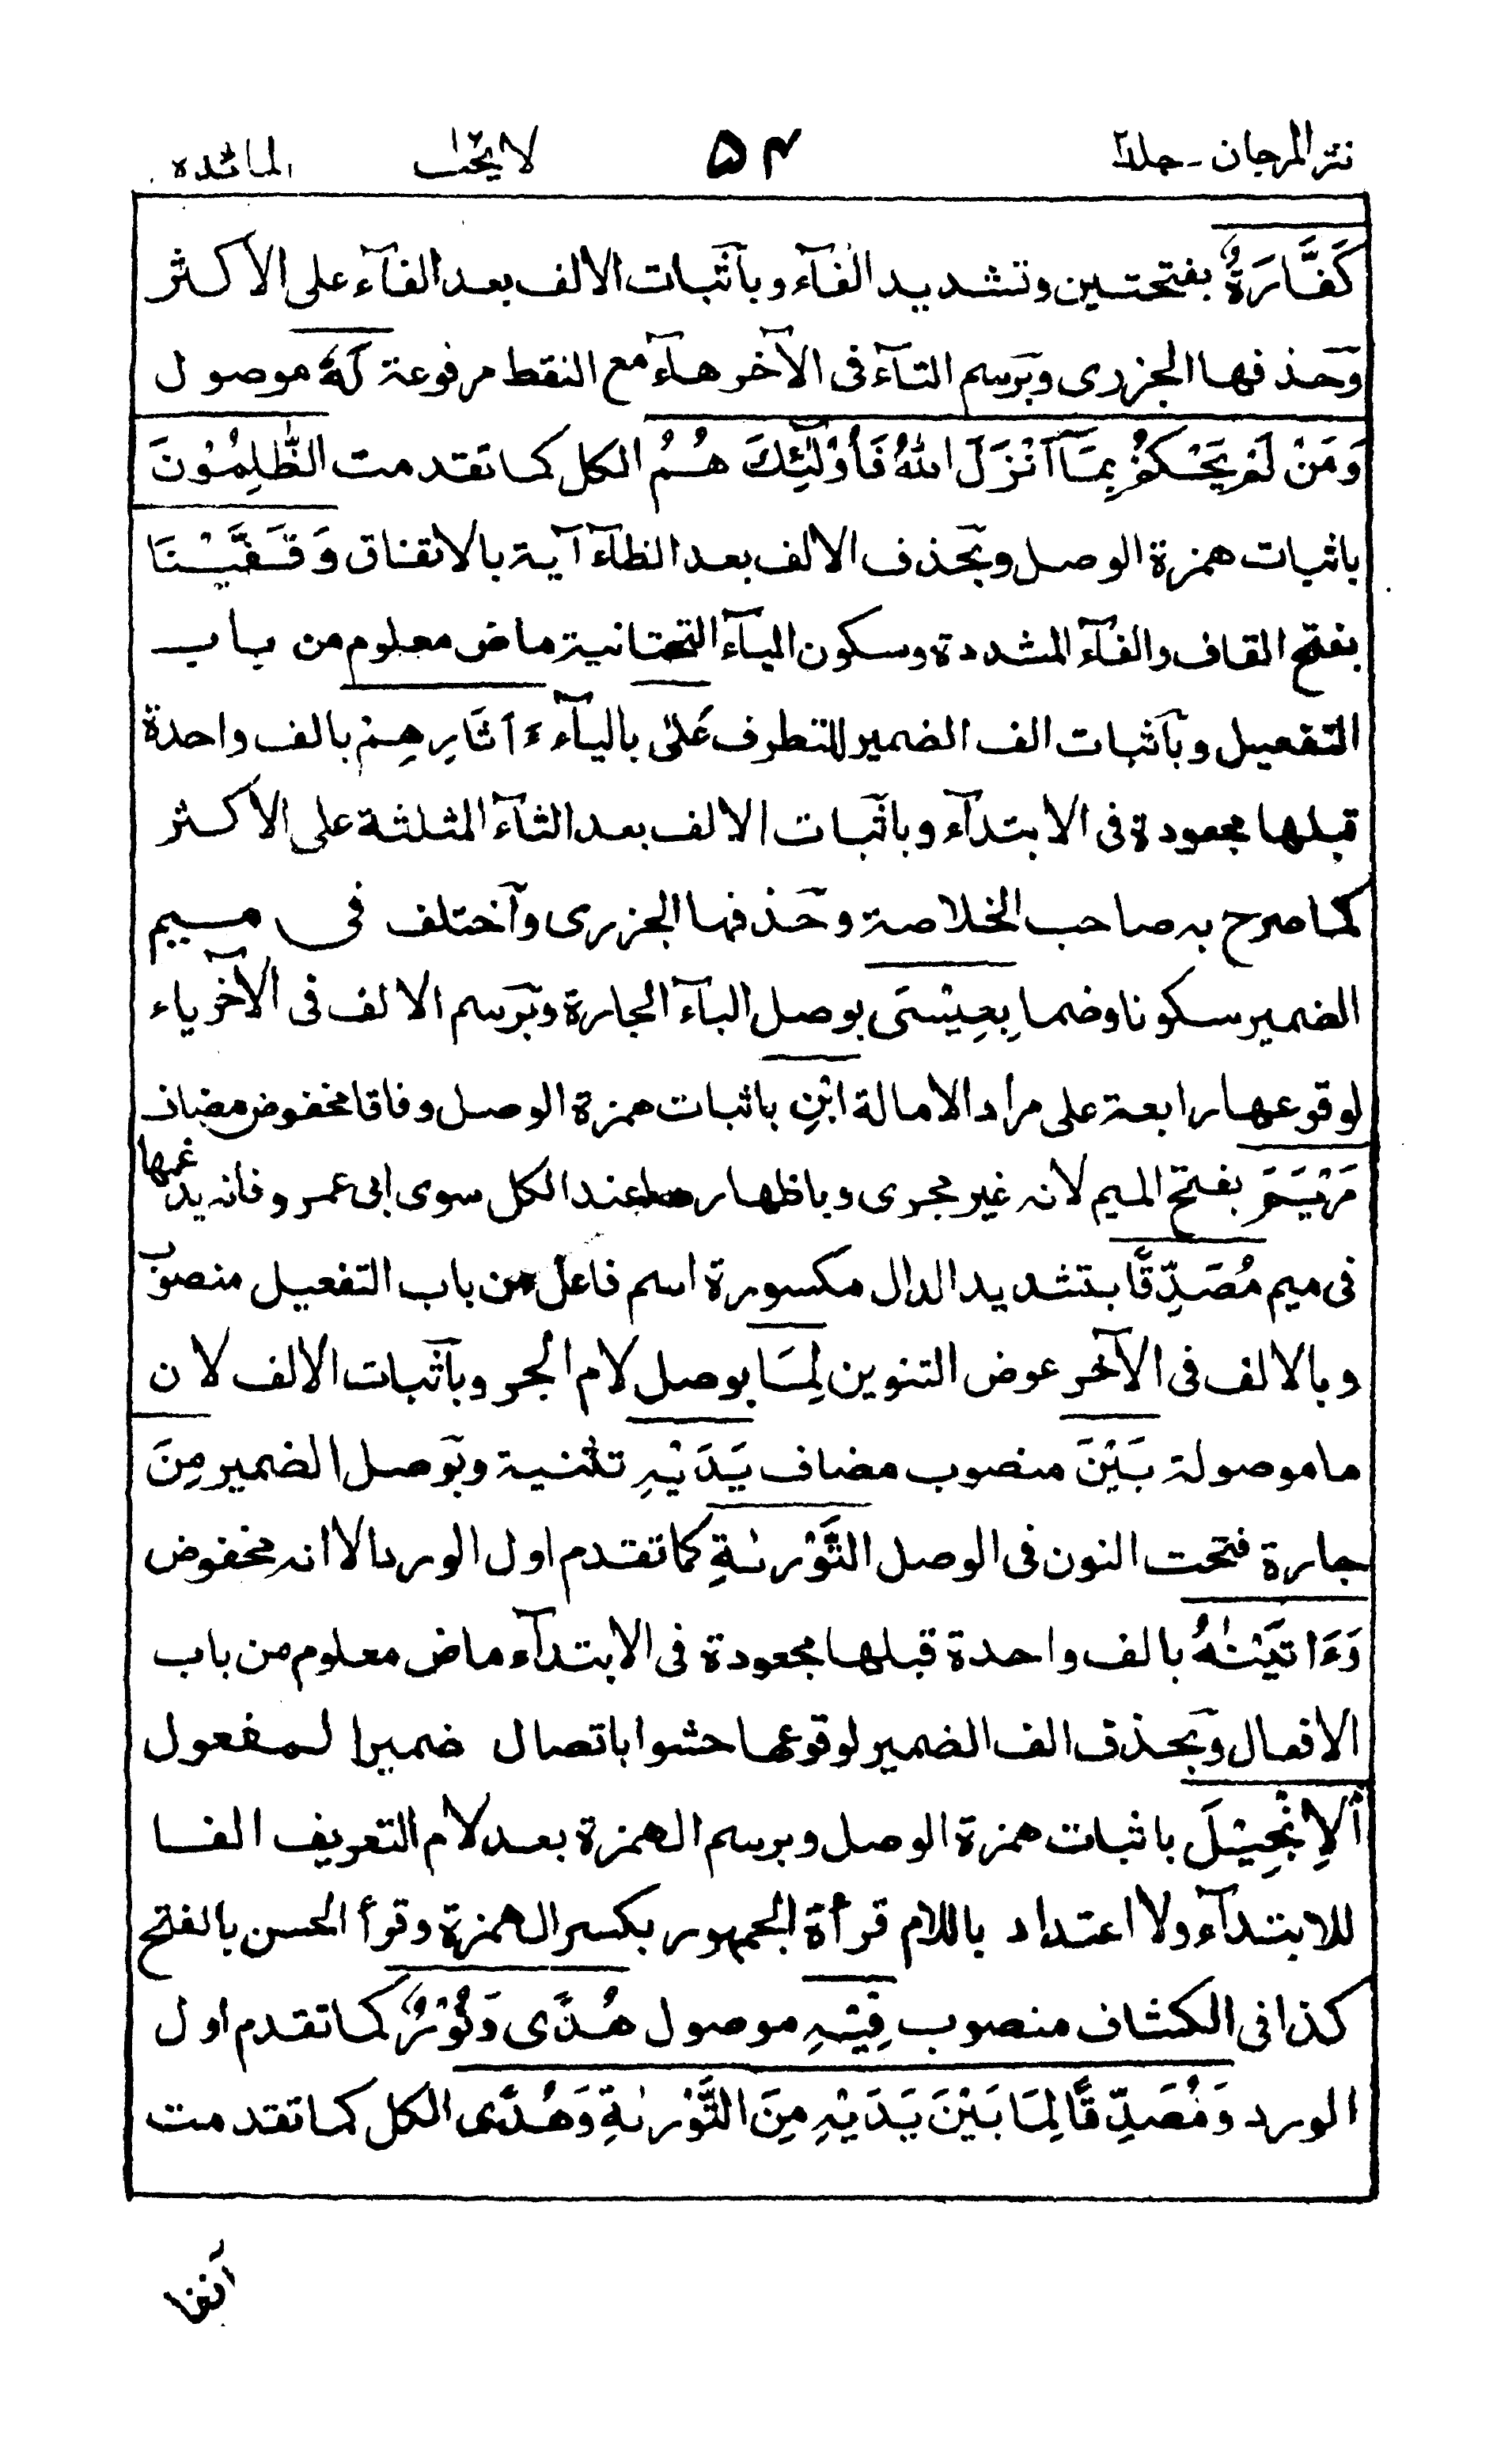 نثر المرجان - جلد٢ ۵۴ لا يحب المائده
كَفَّارَةٌ بفتحتين وتشديد الفآء وبآثبات الالف بعد الفآء على الاكثر
وحذفها الجزرى وبرسم التآء فى الآخر هآء مع النقط مرفوعة لَّهُ موصول
وَمَنْ لَّمْ يَحْكُمْ بِمَآ اَنْزَلَ اللهُ فَاُولٰٓئِكَ هُمُ الكل كما تقدمت الظّٰلِمُوْنَ
باثبات همزة الوصل وبحذف الالف بعد الظآء آية بالاتفاق وَقَفَّيْنَا
بفتح القاف والفآء المشددة وسكون اليآء التحتانية ماض معلوم من باب
التفعيل وبآثبات الف الضمير للتطرف عَلٰى باليآء ءَاثَارِهِمْ بالف واحدة
قبلها مجعودة فى الابتدآء وباثبات الالف بعد الثآء المثلثة على الاكثر
كما صرح به صاحب الخلاصة وحذفها الجزرى وآختلف فى ميم
الضمير سكونا وضما بِعِيْسَى بوصل البآء الجارة وبرسم الالف فى الآخر ياء
لوقوعها رابعة على مراد الامالة ابْنِ باثبات همزة الوصل وفاقا مخفوض مضاف
مَرْيَمَ بفتح الميم لانه غير مجرى وباظهارها عند الكل سوى ابى عمرو فانه يدغمها
فى ميم مُصَدِّقًا بتشديد الدال مكسورة اسم فاعل من باب التفعيل منصوب
وبالالف فى الآخر عوض التنوين لِمَا بوصل لام الجر وبآثبات الالف لان
ما موصولة بَيْنَ منصوب مضاف يَدَيْهِ تثنية وبوصل الضمير مِنَ
جارة فتحت النون فى الوصل التَّوْرٰىةِ كما تقدم اول الورد الا انه مخفوض
وَءَاتَيْنٰهُ بالف واحدة قبلها مجعودة فى الابتدآء ماض معلوم من باب
الافعال وبحذف الف الضمير لوقوعها حشوا باتصال ضمير المفعول
اَلْاِنْجِيْلَ باثبات همزة الوصل وبرسم الهمزة بعد لام التعريف الفا
للابتدآء ولا اعتداد باللام قرأة الجمهور بكسر الهمزة وقرأ الحسن بالفتح
كذا فى الكشاف منصوب فِيْهِ موصول هُدًى وَنُوْرٌ كما تقدم اول
الورد وَمُصَدِّقًا لِمَا بَيْنَ يَدَيْهِ مِنَ التَّوْرٰىةِ وَهُدًى الكل كما تقدمت